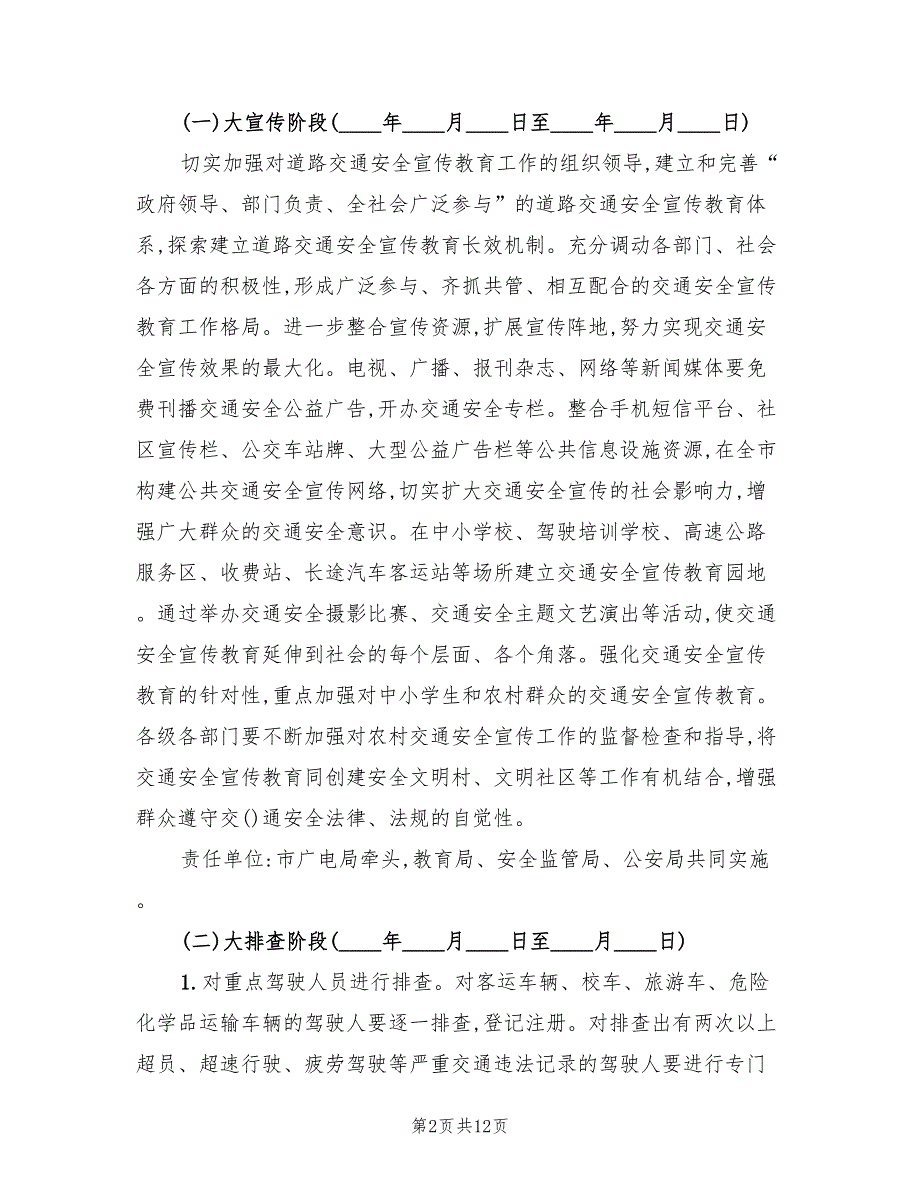 (一)大宣传阶段(____年____月____日至____年____月____日)
切实加强对道路交通安全宣传教育工作的组织领导,建立和完善“
政府领导、部门负责、全社会广泛参与”的道路交通安全宣传教育体
系,探索建立道路交通安全宣传教育长效机制。充分调动各部门、社会
各方面的积极性,形成广泛参与、齐抓共管、相互配合的交通安全宣传
教育工作格局。进一步整合宣传资源,扩展宣传阵地,努力实现交通安
全宣传效果的最大化。电视、广播、报刊杂志、网络等新闻媒体要免
费刊播交通安全公益广告,开办交通安全专栏。整合手机短信平台、社
区宣传栏、公交车站牌、大型公益广告栏等公共信息设施资源,在全市
构建公共交通安全宣传网络,切实扩大交通安全宣传的社会影响力,增
强广大群众的交通安全意识。在中小学校、驾驶培训学校、高速公路
服务区、收费站、长途汽车客运站等场所建立交通安全宣传教育园地
。通过举办交通安全摄影比赛、交通安全主题文艺演出等活动,使交通
安全宣传教育延伸到社会的每个层面、各个角落。强化交通安全宣传
教育的针对性,重点加强对中小学生和农村群众的交通安全宣传教育。
各级各部门要不断加强对农村交通安全宣传工作的监督检查和指导,将
交通安全宣传教育同创建安全文明村、文明社区等工作有机结合,增强
群众遵守交()通安全法律、法规的自觉性。
责任单位:市广电局牵头,教育局、安全监管局、公安局共同实施
。
(二)大排查阶段(____年____月____日至____月____日)
1.对重点驾驶人员进行排查。对客运车辆、校车、旅游车、危险
化学品运输车辆的驾驶人要逐一排查,登记注册。对排查出有两次以上
超员、超速行驶、疲劳驾驶等严重交通违法记录的驾驶人要进行专门
第2页共12页